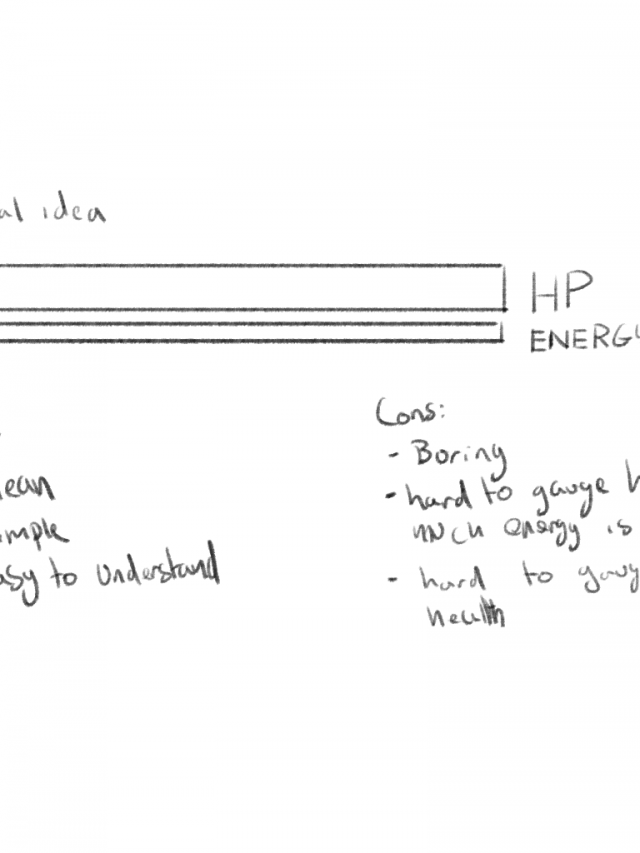 al idea
HP
ENERGY
lean
imple
asy to understand
Cons:
- Boring
- hard to gauge h
much energy is
- hard to gaug
health